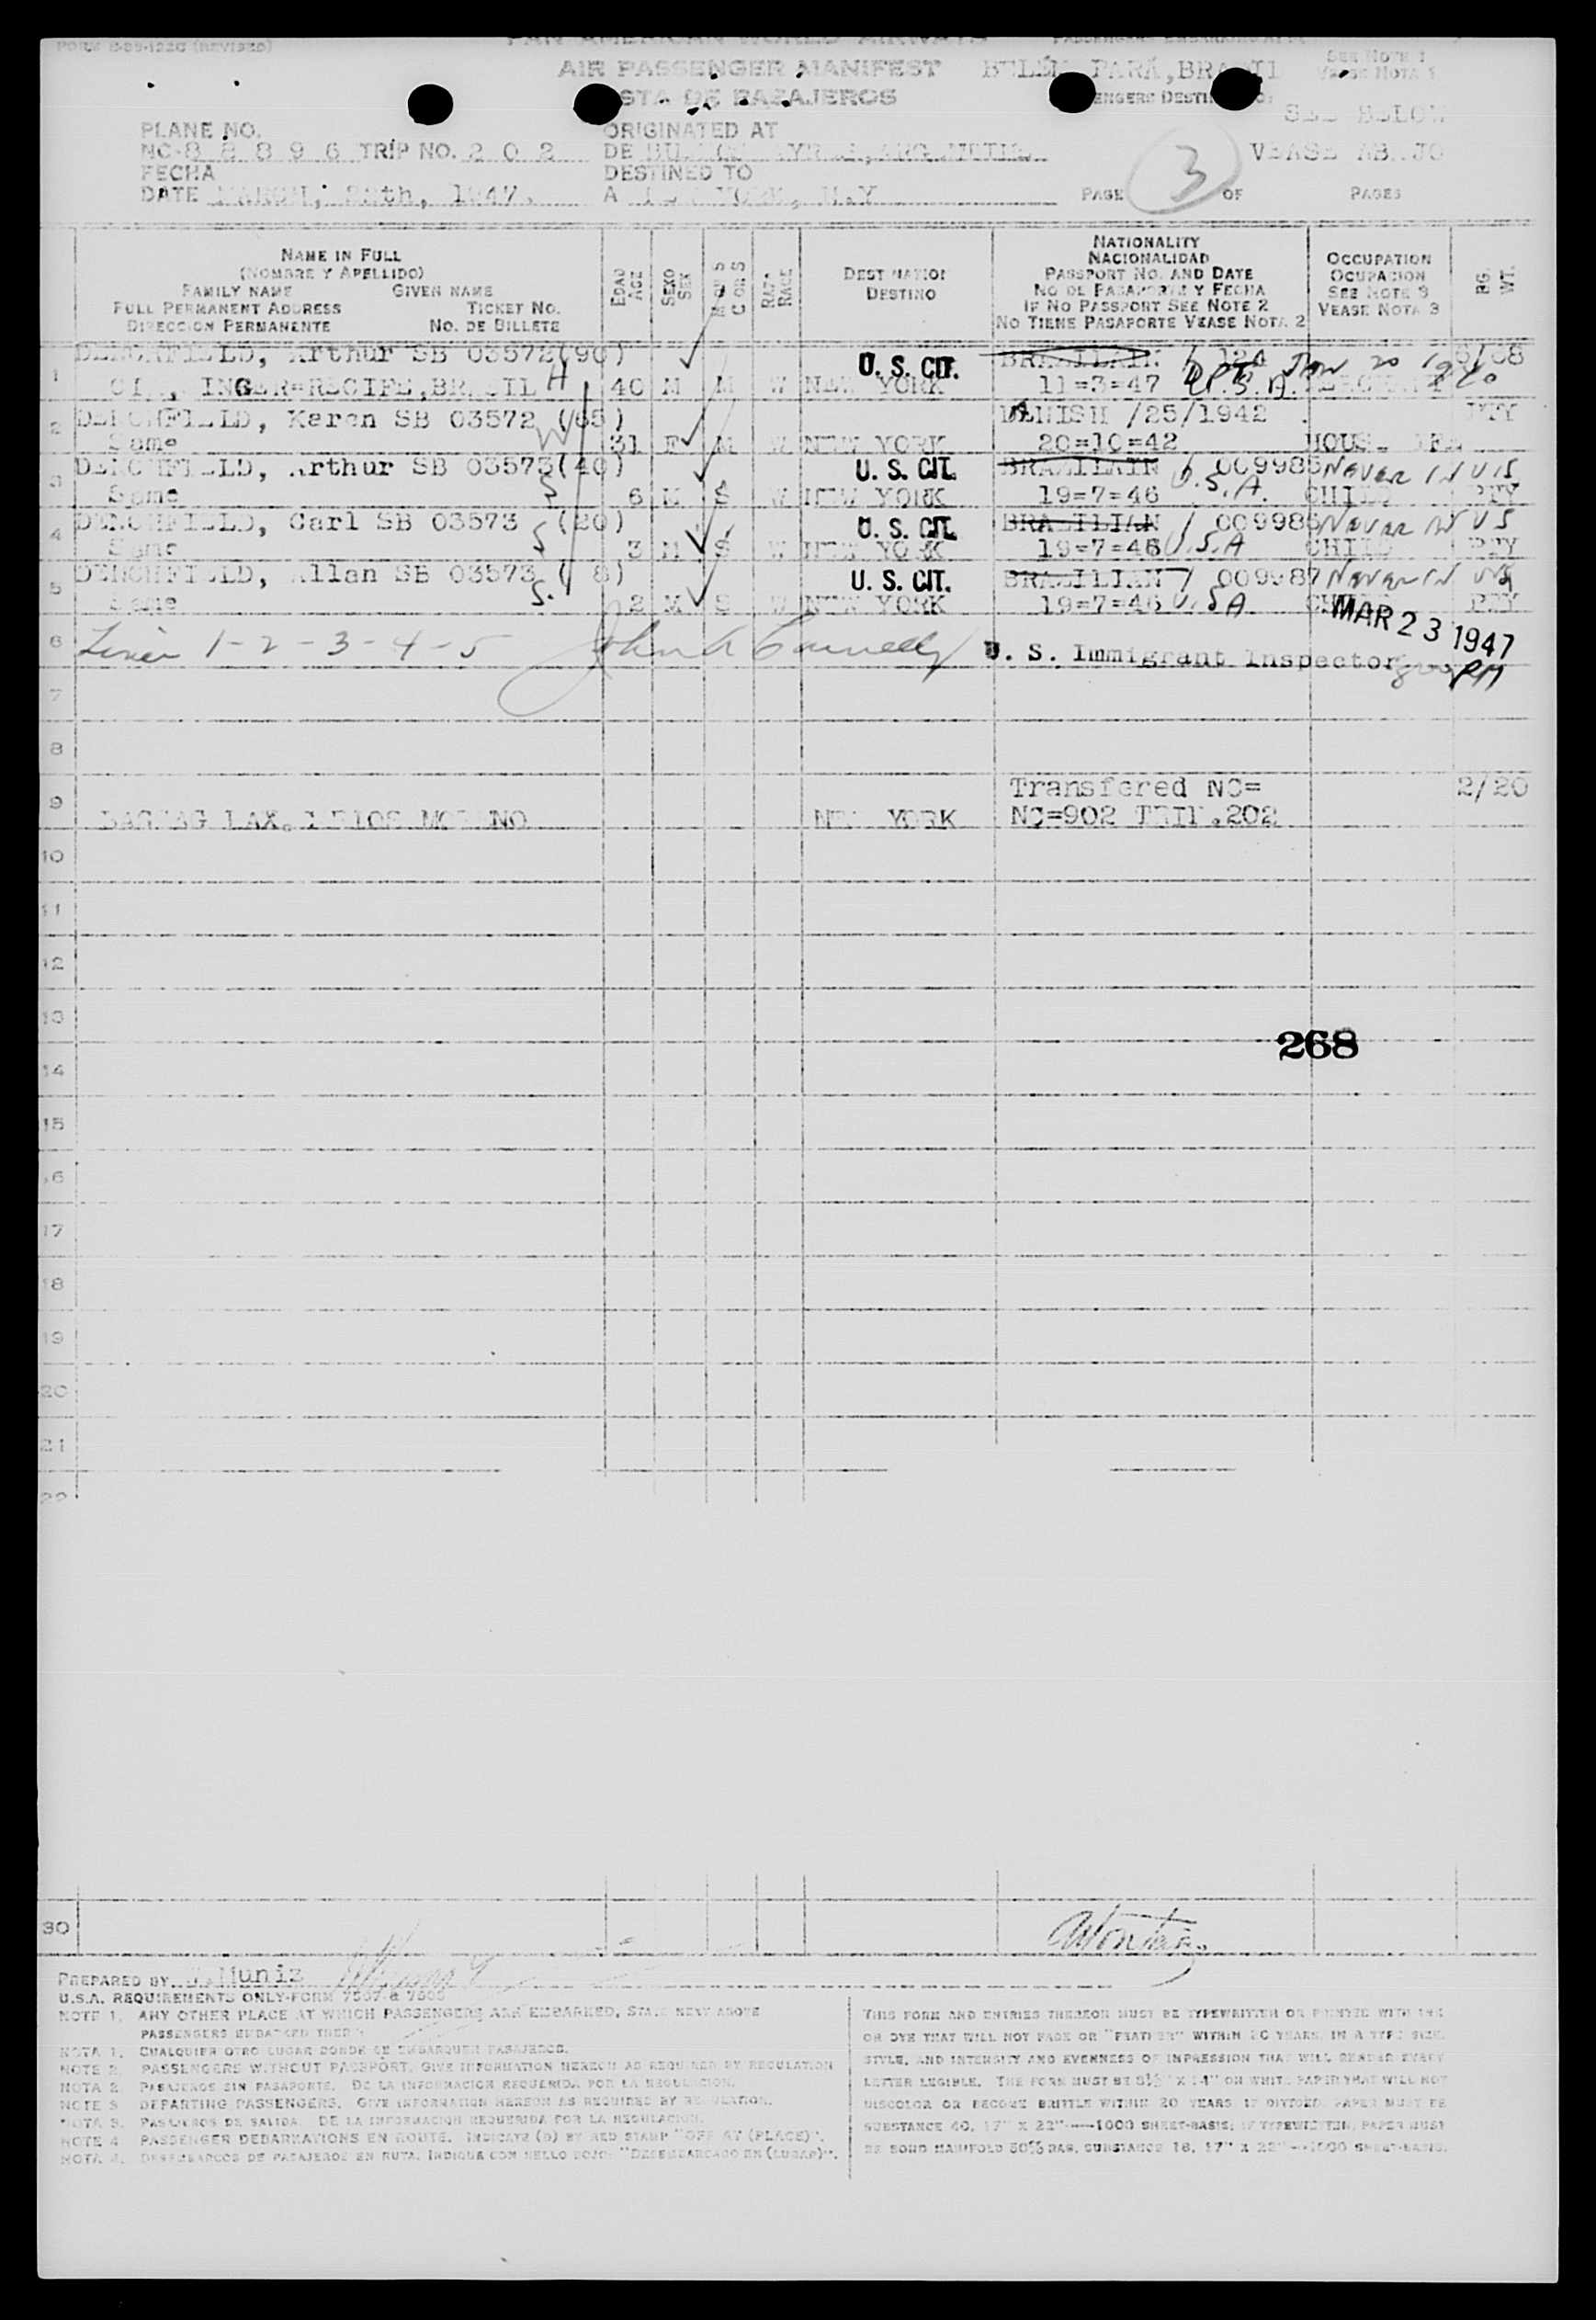 FORM (REVISED)
PAN AMERICAN WORLD AIRWAYS
AIR PASSENGER MANIFEST
BELÉM PARÁ, BRAZIL
SEE NOTE 1
VEASE NOTA 1
LISTA DE PASAJEROS
SEE BELOW
PLANE NO.
ORIGINATED AT
NC-8 8 8 9 6 TRIP NO. 2 0 2
DE BUENOS AYRES, ARGENTINE
VEASE ABAJO
FECHA
DESTINED TO
DATE MARCH, 22th, 1947.
A NEW YORK, N.Y
PAGE 3 OF PAGES
NAME IN FULL
(NOMBRE Y APELLIDO)
FAMILY NAME GIVEN NAME
FULL PERMANENT ADDRESS TICKET NO.
DIRECCION PERMANENTE NO. DE BILLETE
EDAD AGE
SEXO SEX
RAZA RACE
DESTINATION
DESTINO
NATIONALITY
NACIONALIDAD
PASSPORT NO. AND DATE
NO DE PASAPORTE Y FECHA
IF NO PASSPORT SEE NOTE 2
NO TIENE PASAPORTE VEASE NOTA 2
OCCUPATION
OCUPACION
SEE NOTE 3
VEASE NOTA 3
BG. WT.
1 DENCHFIELD, Arthur SB 03572(90) U. S. CIT. BRAZILAIN / 124 JAN 20
INGER=RECIFE,BRASIL H 40 M M W NEW YORK 11=3=47 U.S.A.
2 DENCHFIELD, Karen SB 03572 (65) DANISH /25/1942
Same W 31 F M W NEW YORK 20=10=42 HOUSEWIFE
3 DENCHFIELD, Arthur SB 03573(40) U. S. CIT. BRAZILAIN / 009985 NEVER IN US
Same S 6 M S W NEW YORK 19=7=46 U.S.A. CHILD PTY
4 DENCHFIELD, Carl SB 03573 (20) U. S. CIT. BRAZILIAN / 009986 NEVER IN US
Same S 3 M S W NEW YORK 19=7=46 U.S.A CHILD PTY
5 DENCHFIELD, Allan SB 03573 ( 8) U. S. CIT. BRAZILIAN / 009987 NEVER IN US
Same S. 2 M S W NEW YORK 19=7=46 U.S.A CHILD PTY
MAR 23 1947
6 Lines 1-2-3-4-5 U. S. Immigrant Inspector PM
7
8
9 Transfered NC= 2/20
NEW YORK NC=902 TRIP.202
10
11
12
13
268
14
15
16
17
18
19
20
21
22
30
PREPARED BY Muniz
U.S.A. REQUIREMENTS ONLY-FORM 7507 & 7509
NOTE 1. ANY OTHER PLACE AT WHICH PASSENGERS ARE EMBARKED, STATE NEXT ABOVE
PASSENGERS EMBARKED THERE
NOTA 1. CUALQUIER OTRO LUGAR DONDE SE EMBARQUEN PASAJEROS.
NOTE 2. PASSENGERS WITHOUT PASSPORT. GIVE INFORMATION HEREON AS REQUIRED BY REGULATION
NOTA 2. PASAJEROS SIN PASAPORTE. DE LA INFORMACION REQUERIDA POR LA REGULACION.
NOTE 3 DEPARTING PASSENGERS. GIVE INFORMATION HEREON AS REQUIRED BY REGULATION.
NOTA 3. PASAJEROS DE SALIDA. DE LA INFORMACION REQUERIDA POR LA REGULACION.
NOTE 4 PASSENGER DEBARKATIONS EN ROUTE. INDICATE (D) BY RED STAMP "OFF AT (PLACE)".
NOTA 4. DESEMBARCOS DE PASAJEROS EN RUTA. INDIQUE CON SELLO ROJO "DESEMBARCADO EN (LUGAR)".
THIS FORM AND ENTRIES THEREON MUST BE TYPEWRITTEN OR PRINTED WITH INK
OR DYE THAT WILL NOT FADE OR "FEATHER" WITHIN 20 YEARS, IN A TYPE SIZE,
STYLE, AND INTENSITY AND EVENNESS OF IMPRESSION THAT WILL RENDER EVERY
LETTER LEGIBLE. THE FORM MUST BE 8½" X 14" ON WHITE PAPER THAT WILL NOT
DISCOLOR OR BECOME BRITTLE WITHIN 20 YEARS. IF DIVIDED, PAPER MUST BE
SUBSTANCE 40, 17" X 22"—1000 SHEET-BASIS; IF TYPEWRITTEN, PAPER MUST
BE BOND MANIFOLD 50% RAG, SUBSTANCE 16, 17" X 22"—1000 SHEET-BASIS.